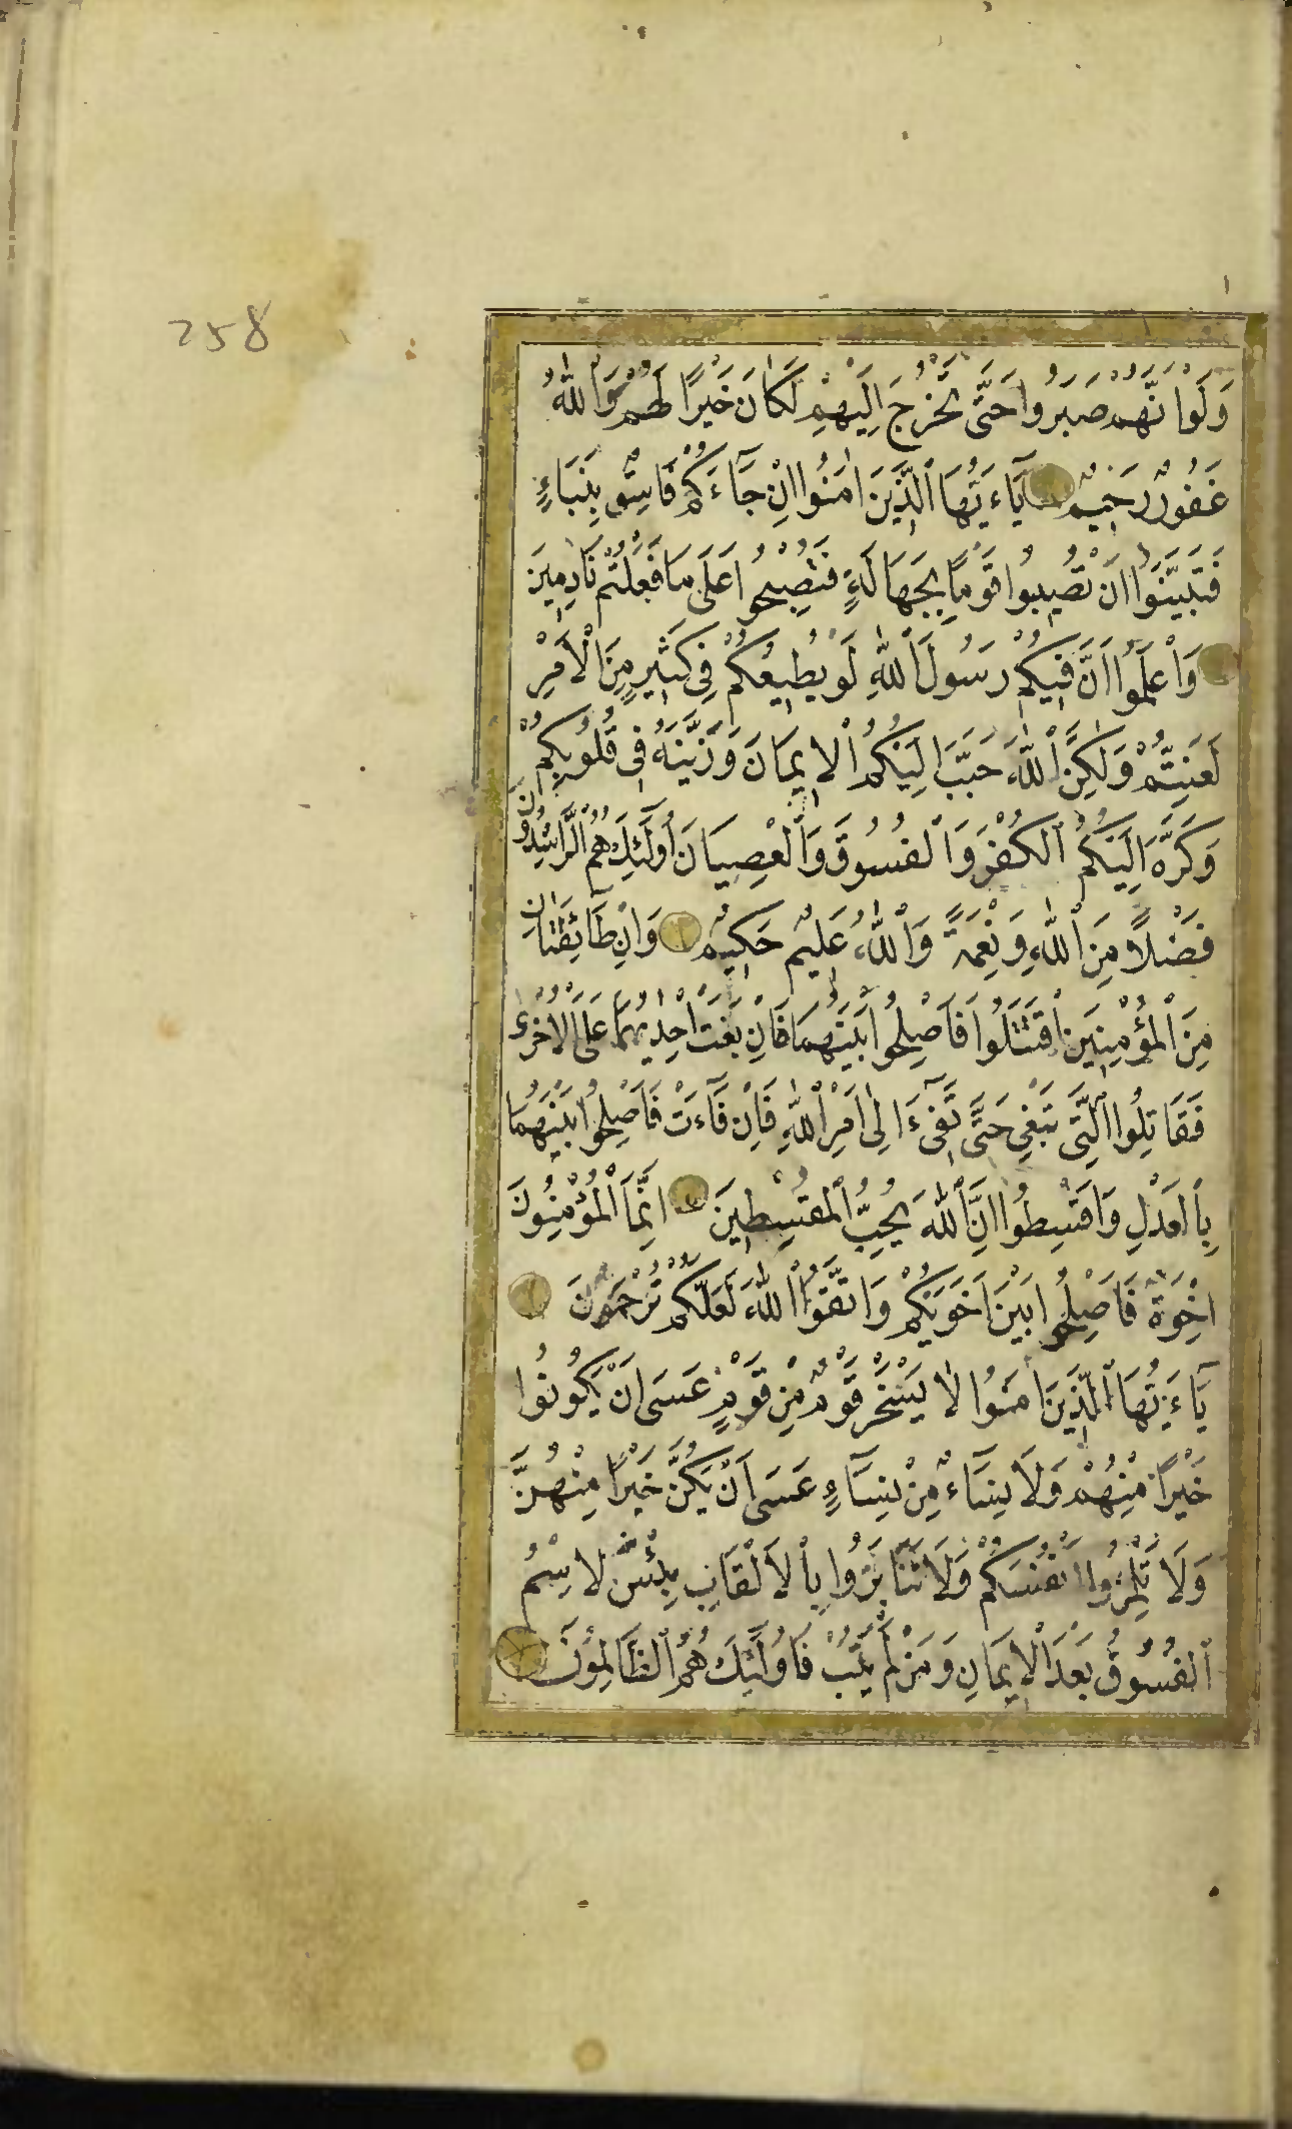 258
وَلَوْ اَنَّهُمْ صَبَرُوا حَتّٰى تَخْرُجَ اِلَيْهِمْ لَكَانَ خَيْرًا لَهُمْ وَٱللّٰهُ
غَفُورٌ رَحِيمٌ يَآءَيُّهَا ٱلَّذِينَ اٰمَنُوا اِنْ جَآءَكُمْ فَاسِقٌ بِنَبَاءٍ
فَتَبَيَّنُوا اَنْ تُصِيبُوا قَوْمًا بِجَهَالَةٍ فَتُصْبِحُوا عَلَى مَا فَعَلْتُمْ نَادِمِينَ
وَٱعْلَمُوا اَنَّ فِيكُمْ رَسُولَ ٱللّٰهِ لَوْ يُطِيعُكُمْ فِى كَثِيرٍ مِنَ ٱلْاَمْرِ
لَعَنِتُّمْ وَلٰكِنَّ ٱللّٰهَ حَبَّبَ اِلَيْكُمُ ٱلْاِيمَانَ وَزَيَّنَهُ فِى قُلُوبِكُمْ
وَكَرَّهَ اِلَيْكُمُ ٱلْكُفْرَ وَٱلْفُسُوقَ وَٱلْعِصْيَانَ اُولٰٓئِكَ هُمُ ٱلرَّاشِدُونَ
فَضْلًا مِنَ ٱللّٰهِ وَنِعْمَةً وَٱللّٰهُ عَلِيمٌ حَكِيمٌ وَاِنْ طَآئِفَتَانِ
مِنَ ٱلْمُؤْمِنِينَ ٱقْتَتَلُوا فَاَصْلِحُوا بَيْنَهُمَا فَاِنْ بَغَتْ اِحْدٰيهُمَا عَلَى ٱلْاُخْرٰى
فَقَاتِلُوا ٱلَّتِى تَبْغِى حَتّٰى تَفِىٓءَ اِلٰى اَمْرِ ٱللّٰهِ فَاِنْ فَآءَتْ فَاَصْلِحُوا بَيْنَهُمَا
بِٱلْعَدْلِ وَاَقْسِطُوا اِنَّ ٱللّٰهَ يُحِبُّ ٱلْمُقْسِطِينَ اِنَّمَا ٱلْمُؤْمِنُونَ
اِخْوَةٌ فَاَصْلِحُوا بَيْنَ اَخَوَيْكُمْ وَاتَّقُوا ٱللّٰهَ لَعَلَّكُمْ تُرْحَمُونَ
يَآءَيُّهَا ٱلَّذِينَ اٰمَنُوا لَا يَسْخَرْ قَوْمٌ مِنْ قَوْمٍ عَسَى اَنْ يَكُونُوا
خَيْرًا مِنْهُمْ وَلَا نِسَآءٌ مِنْ نِسَآءٍ عَسَى اَنْ يَكُنَّ خَيْرًا مِنْهُنَّ
وَلَا تَلْمِزُوا اَنْفُسَكُمْ وَلَا تَنَابَزُوا بِٱلْاَلْقَابِ بِئْسَ ٱلِاسْمُ
ٱلْفُسُوقُ بَعْدَ ٱلْاِيمَانِ وَمَنْ لَمْ يَتُبْ فَاُولٰٓئِكَ هُمُ ٱلظَّالِمُونَ